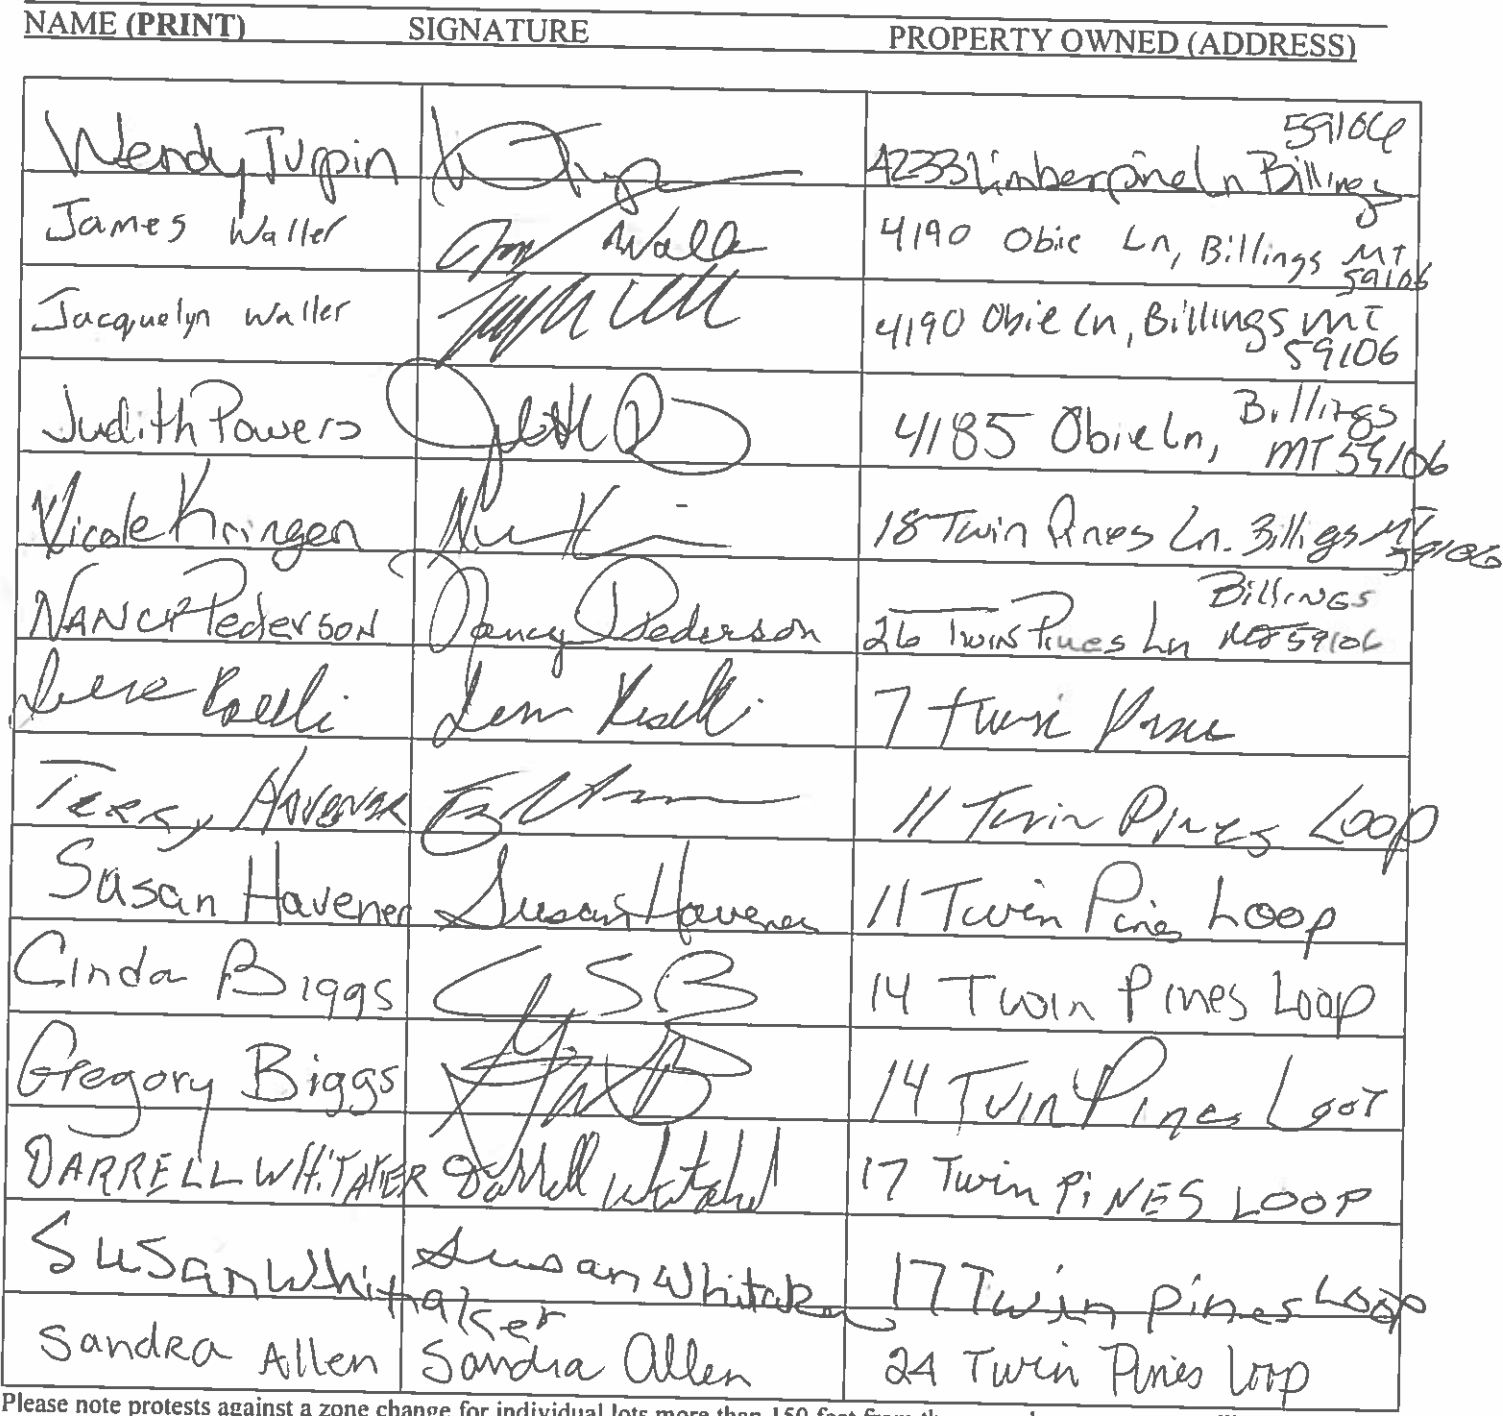 NAME (PRINT) SIGNATURE PROPERTY OWNED (ADDRESS)
Wendy Turpin 4233 Limberpine Ln Billings 59106
James Waller Waller 4190 Obie Ln, Billings MT 59106
Jacquelyn Waller 4190 Obie Ln, Billings MT 59106
Judith Powers 4185 Obie Ln, Billings MT 59106
Nicole Kringen 18 Twin Pines Ln. Billings MT 59106
NANCY Pederson Nancy Pederson 26 Twin Pines Ln Billings 59106
7 Twin
Terry Havener 11 Twin Pines Loop
Susan Havener Susan Havener 11 Twin Pines Loop
Cinda Biggs CSB 14 Twin Pines Loop
Gregory Biggs 14 Twin Pines Loop
DARRELL WHITAKER Darrell Whitaker 17 Twin PINES LOOP
Susan Whitaker Susan Whitaker 17 Twin pines Loop
Sandra Allen Sandra Allen 24 Twin Pines Loop
Please note protests against a zone change for individual lots more than 150 feet from the